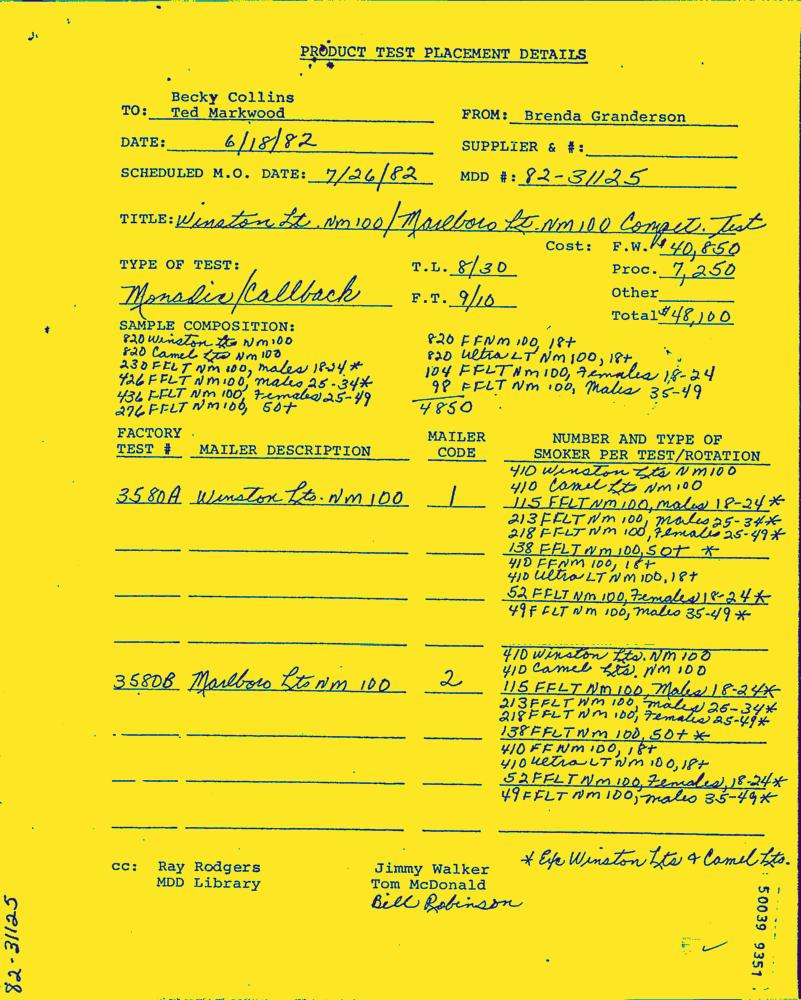 PRODUCT TEST PLACEMENT DETAILS
Becky Collins
TO: Ted Markwood
FROM: Brenda Granderson
DATE: 6/18/82
SUPPLIER & #:
SCHEDULED M.O. DATE: 7/26/82
MDD #: 82-31125
TITLE: Winston Lt. NM100/Marlboro Lt. NM100 Compet. Test
Cost: F.W. $40,850
TYPE OF TEST:
T.L. 8/30
Proc. 7,250
Monadic/Callback
F.T. 9/10
Other
Total $48,100
SAMPLE COMPOSITION:
820 Winston Lts NM100
820 Camel Lts NM100
230 FFLT NM100, males 18-24*
426 FFLT NM100, males 25-34*
436 FFLT NM100, Females 25-49
276 FFLT NM100, 50+
820 FFNM100, 18+
820 Ultra LT NM100, 18+
104 FFLT NM100, Females 18-24
98 FFLT NM100, Males 35-49
4850
FACTORY TEST #
MAILER DESCRIPTION
MAILER CODE
NUMBER AND TYPE OF
SMOKER PER TEST/ROTATION
3580A Winston Lts. NM100 1
410 Winston Lts NM100
410 Camel Lts NM100
115 FFLT NM100, males 18-24*
213 FFLT NM100, males 25-34*
218 FFLT NM100, Females 25-49*
138 FFLT NM100, 50+ *
410 FFNM100, 18+
410 Ultra LT NM100, 18+
52 FFLT NM100, Females 18-24*
49 FFLT NM100, males 35-49*
3580B Marlboro Lts NM 100 2
410 Winston Lts. NM100
410 Camel Lts. NM100
115 FFLT NM100, Males 18-24*
213 FFLT NM100, males 25-34*
218 FFLT NM100, Females 25-49*
138 FFLT NM100, 50+ *
410 FFNM100, 18+
410 Ultra LT NM100, 18+
52 FFLT NM100, Females, 18-24*
49 FFLT NM100, males 35-49*
* Exc Winston Lts & Camel Lts.
cc: Ray Rodgers
MDD Library
Jimmy Walker
Tom McDonald
Bill Robinson
82-31125
50039 9351